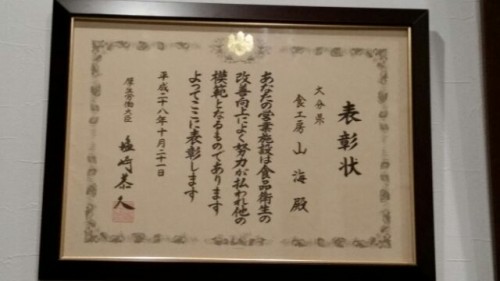 表彰状
大分県
食工房 山海 殿
あなたの営業施設は食品衛生の
改善向上によく努力が払われ他の
模範となるものであります
よってここに表彰します
平成二十八年十月二十一日
厚生労働大臣
塩崎恭久